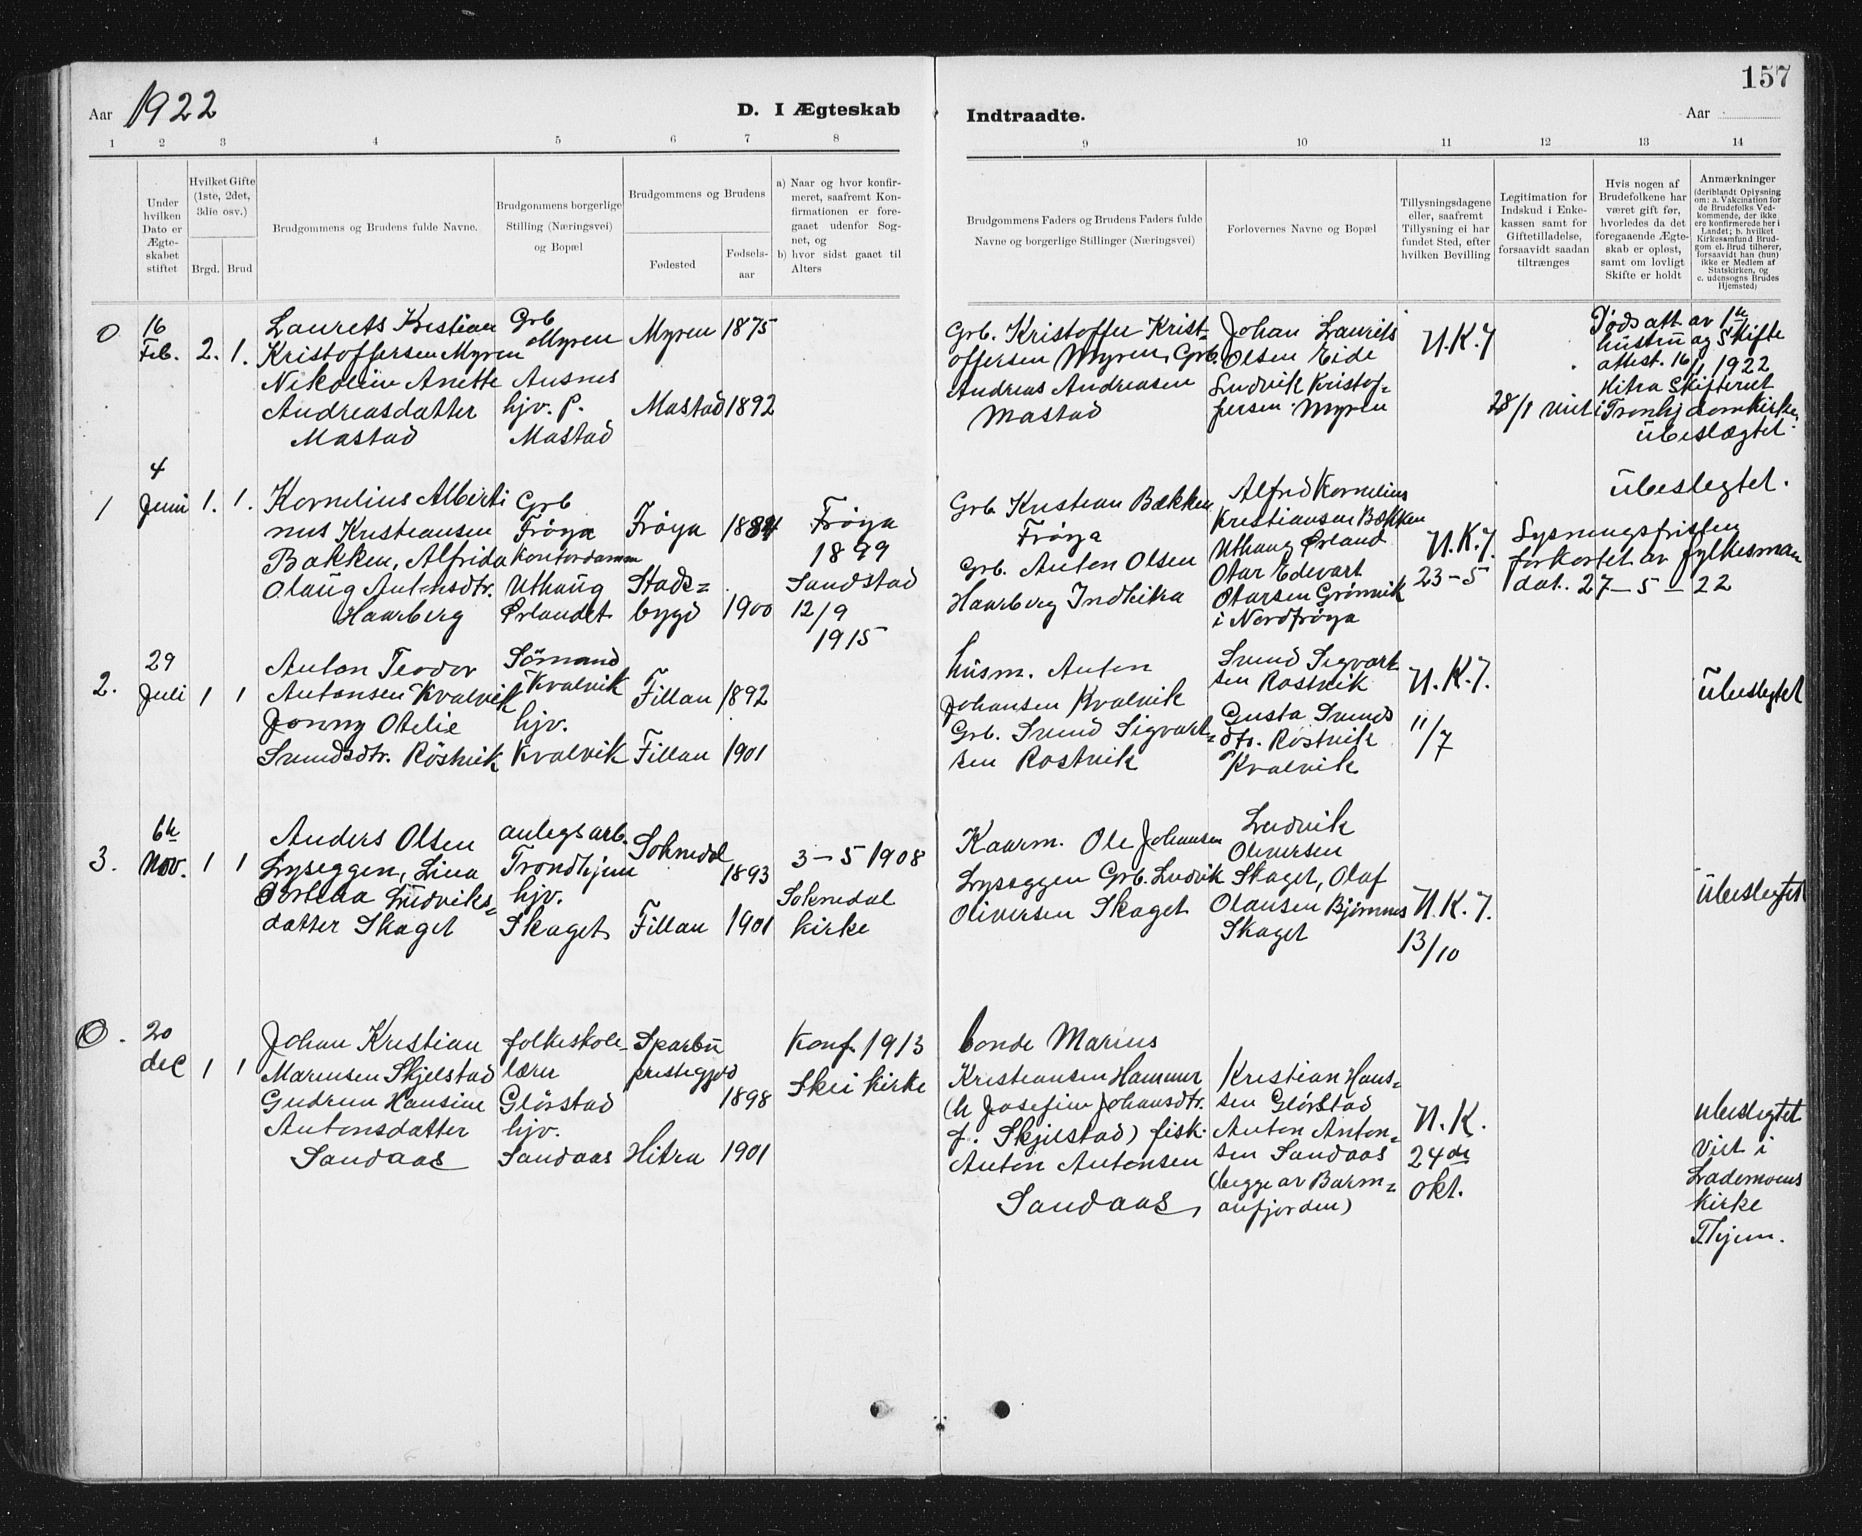 157
Aar 1922
D. I Ægteskab
Indtraadte.
Aar
1 2 3 4 5 6 7 8
9 10 11 12 13 14
Under hvilken Dato er Ægteskabet stiftet
Hvilket Gifte (1ste, 2det, 3die osv.)
Brgd. Brud
Brudgommens og Brudens fulde Navne.
Brudgommens borgerlige Stilling (Næringsvei) og Bopæl
Brudgommens og Brudens
Fødested
Fødsels-aar
a) Naar og hvor konfirmeret, saafremt Konfirmationen er foregaaet udenfor Sognet, og
b) hvor sidst gaaet til Alters
Brudgommens Faders og Brudens Faders fulde Navne og borgerlige Stillinger (Næringsvei)
Forlovernes Navne og Bopæl
Tillysningsdagene eller, saafremt Tillysning ei har fundet Sted, efter hvilken Bevilling
Legitimation for Indskud i Enkekassen samt for Giftetilladelse, forsaavidt saadan tiltrænges
Hvis nogen af Brudefolkene har været gift før, hvorledes da det foregaaende Ægteskab er opløst, samt om lovligt Skifte er holdt
Anmærkninger
(deriblandt Oplysning om: a. Vakcination for de Brudefolks Vedkommende, der ikke er konfirmerede her i Landet; b. hvilket Kirkesamfund Brudgom el. Brud tilhører, forsaavidt han (hun) ikke er Medlem af Statskirken, og c. udensogns Brudes Hjemsted)
0
16
Feb. 2. 1.
Laurets Kristian
Kristoffersen Myren
Nikoline Anette
Andreasdatter
Mastad
Grb
Myren
Ausnes
hjv. P.
Mastad
Myren 1875
Mastad 1892
Grb. Kristoffer Krist-
offersen Myren, Grb.
Andreas Andreasen
Mastad
Johan Laurits
Olsen Eide
Ludvik Kristof=
fersen Myren
U.K.7
28/1 viet i
Dødsatt av 1ste
hustru og Skifte
attest. 16/1 1922
Hitra Skifteret
Tronhj domkirke.
übeslægtet.
1
4
Juni 1. 1.
Kornelius Alberti
nus Kristiansen
Bakken, Alfrida
Olaug Antonsdtr.
Haarberg
Grb
Frøya
Kontordame
Uthaug
Ørlandet
Frøya 1884
Stads=
bygd 1900
Frøya
1899
Sandstad
12/9
1915
Grb Kristian Bakken
Frøya
Grb. Anton Olsen
Haarberg Indhitra
Alfred Kornelius
Kristiansen Bakken
Uthaug Ørland
Otar Edevart
Otarsen Grønvik
i Nordfrøya
U.K.7.
23-5
Lysningsfristen
forkortet av fylkesman
dat. 27-5-22
übeslegtet.
2.
29
Juli 1 1
Anton Teodor
Antonsen Kvalvik
Jonny Otelie
Svendsdtr. Röstvik
Sömand
Kvalvik
hjv.
Kvalvik
Fillan 1892
Fillan 1901
husm. Anton
Johansen Kvalvik
Grb. Svend Sigvart=
sen Rostvik
Svend Sigvart
sen Rostvik
Gusta Svends
dtr. Röstvik
Kvalvik
U.K.7.
11/7
übeslegtet
3.
6te
Nov. 1 1
Anders Olsen
Lyseggen, Lina
Ludviks=
datter Skaget
anlegsarb.
Trondhjem
hjv.
Skaget
Soknedal
1893
Fillan 1901
3-5 1908
Soknedal
kirke
Kaarm. Ole Johansen
Lyseggen Grb. Ludvik
Oliversen Skaget
Ludvik
Oliversen
Skaget, Olaf
Olausen Bjørnnes
Skaget
U.K.7.
13/10
Übeslegtet
0.
20
dec 1 1
Johan Kristian
Marensen Skjelstad
Gudrun Hansine
Antonsdatter
Sandaas
folkeskole-
lærer
Glörstad
hjv.
Sandaas
Sparbu
prestegjeld
1898
Hitra 1901
Konf. 1913
Skei kirke
bonde Marius
Kristiansen Hammer
(h Josefine Johansdtr.
f. Skjelstad) fisk.
Anton Antonsen
Sandaas,
Kristian Hans=
sen Glörstad
Anton Anton=
sen Sandaas
(begge av Barm=
anfjorden)
U.K.
24de
okt.
ubeslegtet
Viet i
Lademoens
kirke
Thjem.